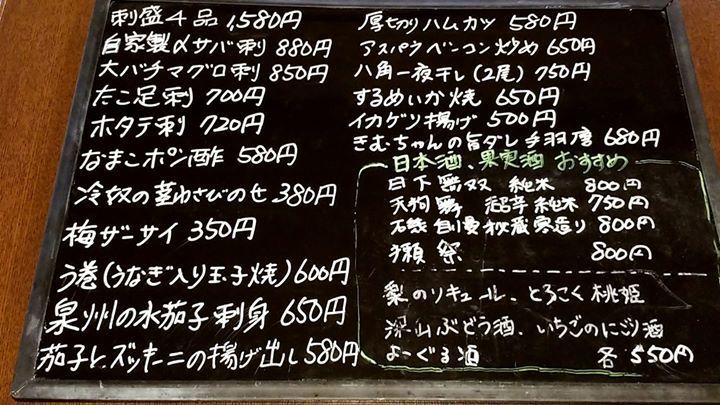 刺盛4品 1,580円
自家製〆サバ刺 880円
大バチマグロ刺 850円
たこ足刺 700円
ホタテ刺 720円
なまこポン酢 580円
冷奴の茎わさびのせ 380円
梅ザーサイ 350円
う巻(うなぎ入り玉子焼) 600円
泉州の水茄子刺身 650円
茄子とズッキーニの揚げ出し 580円
厚切りハムカツ 580円
アスパラベーコン炒め 650円
八角一夜干し(2尾) 750円
するめいか焼 650円
イカゲソ揚げ 500円
きむちゃんの旨ダレ手羽唐 680円
日本酒、果実酒 おすすめ
日下無双 純米 800円
天狗舞 超辛純米 750円
石鎚 自慢秘蔵寒造り 800円
獺祭 800円
梨のリキュール、とろこく桃姫
深山ぶどう酒、いちごのにごり酒
よーぐる酒 各550円